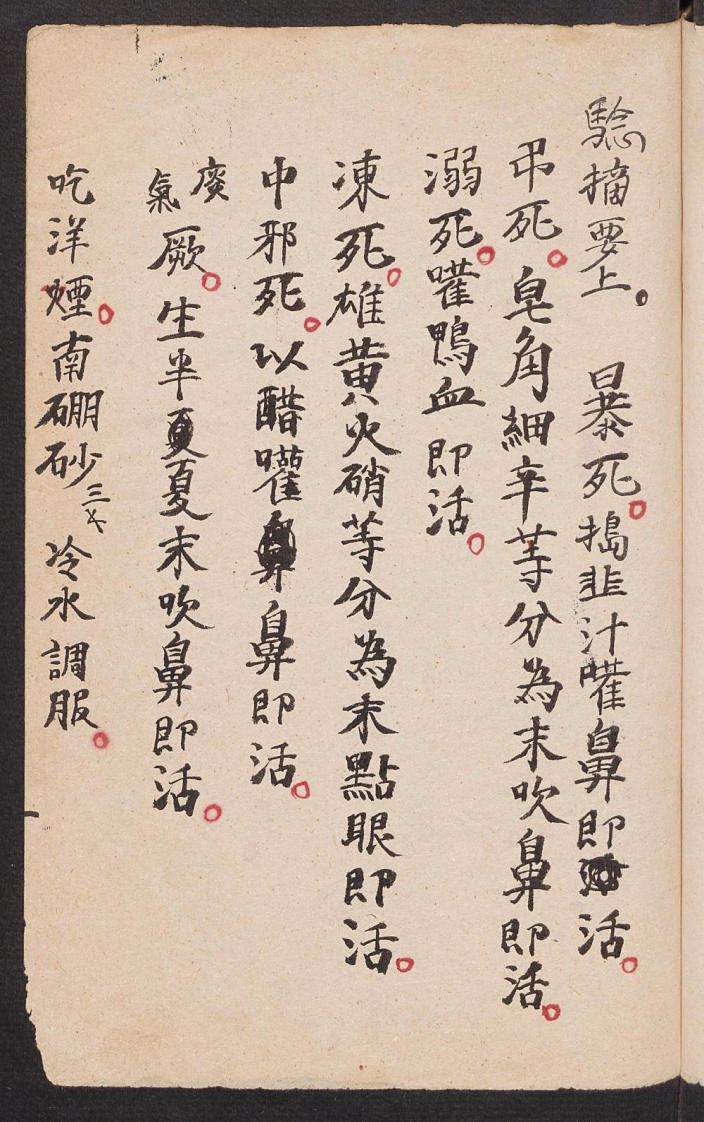 騐摘要上。 暴死。搗韭汁嚾鼻即活。
弔死。皂角細辛等分為末吹鼻即活。
溺死。嚾鴨血即活。
凍死。雄黃火硝等分為末點眼即活。
中邪死。以醋嚾鼻即活。
痰氣厥。生半夏夏末吹鼻即活。
吃洋煙。南硼砂三錢 冷水調服。